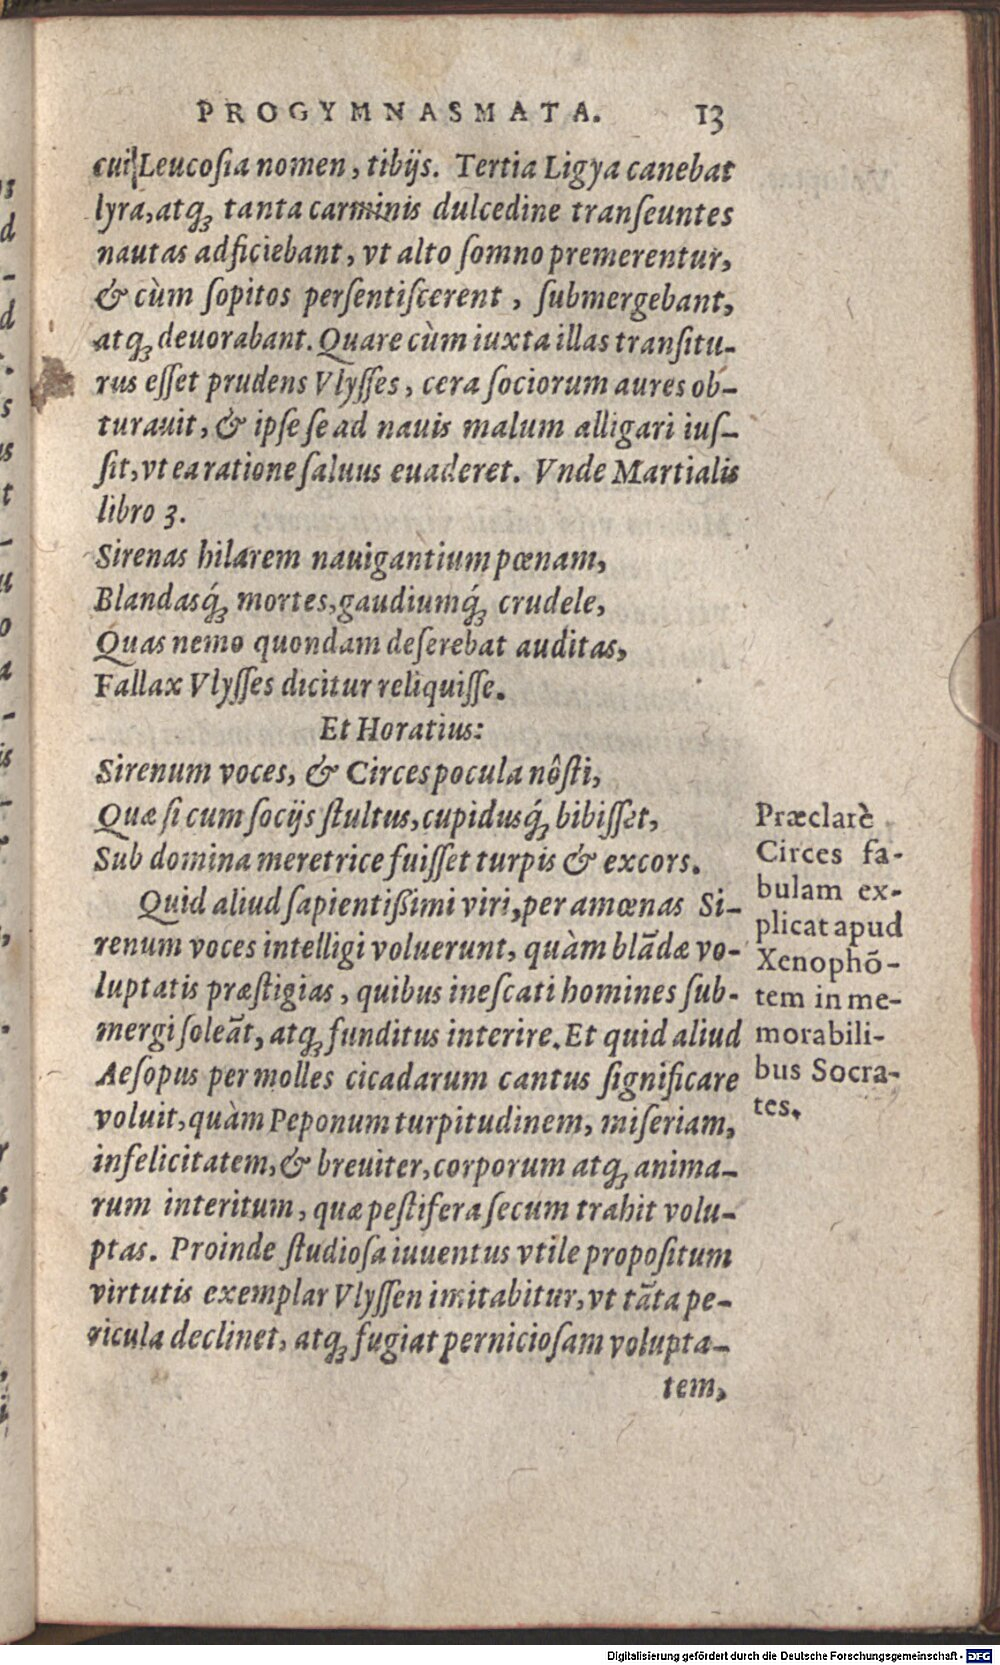 PROGYMNASMATA. 13
cui Leucoſia nomen, tibijs. Tertia Ligya canebat
lyra, atq́ꝫ tanta carminis dulcedine tranſeuntes
nautas adficiebant, vt alto ſomno premerentur,
& cùm ſopitos perſentiſcerent, ſubmergebant,
atq́ꝫ deuorabant. Quare cùm iuxta illas tranſitu-
rus eſſet prudens Vlyſſes, cera ſociorum aures ob-
turauit, & ipſe ſe ad nauis malum alligari iuſ-
ſit, vt ea ratione ſaluus euaderet. Vnde Martialis
libro 3.
Sirenas hilarem nauigantium pœnam,
Blandasq́ꝫ mortes, gaudiumq́ꝫ crudele,
Quas nemo quondam deſerebat auditas,
Fallax Vlyſſes dicitur reliquiſſe.
Et Horatius:
Sirenum voces, & Circes pocula nôſti,
Quæ ſi cum ſocijs ſtultus, cupidusq́ꝫ bibiſſet,
Sub domina meretrice fuiſſet turpis & excors.
Quid aliud ſapientißimi viri, per amœnas Si-
renum voces intelligi voluerunt, quàm blādæ vo-
luptatis præſtigias, quibus ineſcati homines ſub-
mergi ſoleāt, atq́ꝫ funditus interire. Et quid aliud
Aeſopus per molles cicadarum cantus ſignificare
voluit, quàm Peponum turpitudinem, miſeriam,
infelicitatem, & breuiter, corporum atq́ꝫ anima-
rum interitum, quæ peſtifera ſecum trahit volu-
ptas. Proinde ſtudioſa iuuentus vtile propoſitum
virtutis exemplar Vlyſſen imitabitur, vt tāta pe-
ricula declinet, atq́ꝫ fugiat pernicioſam volupta-
tem,
Præclarè
Circes fa-
bulam ex-
plicat apud
Xenophō-
tem in me-
morabili-
bus Socra-
tes.
Digitalisierung gefördert durch die Deutsche Forschungsgemeinschaft - DFG